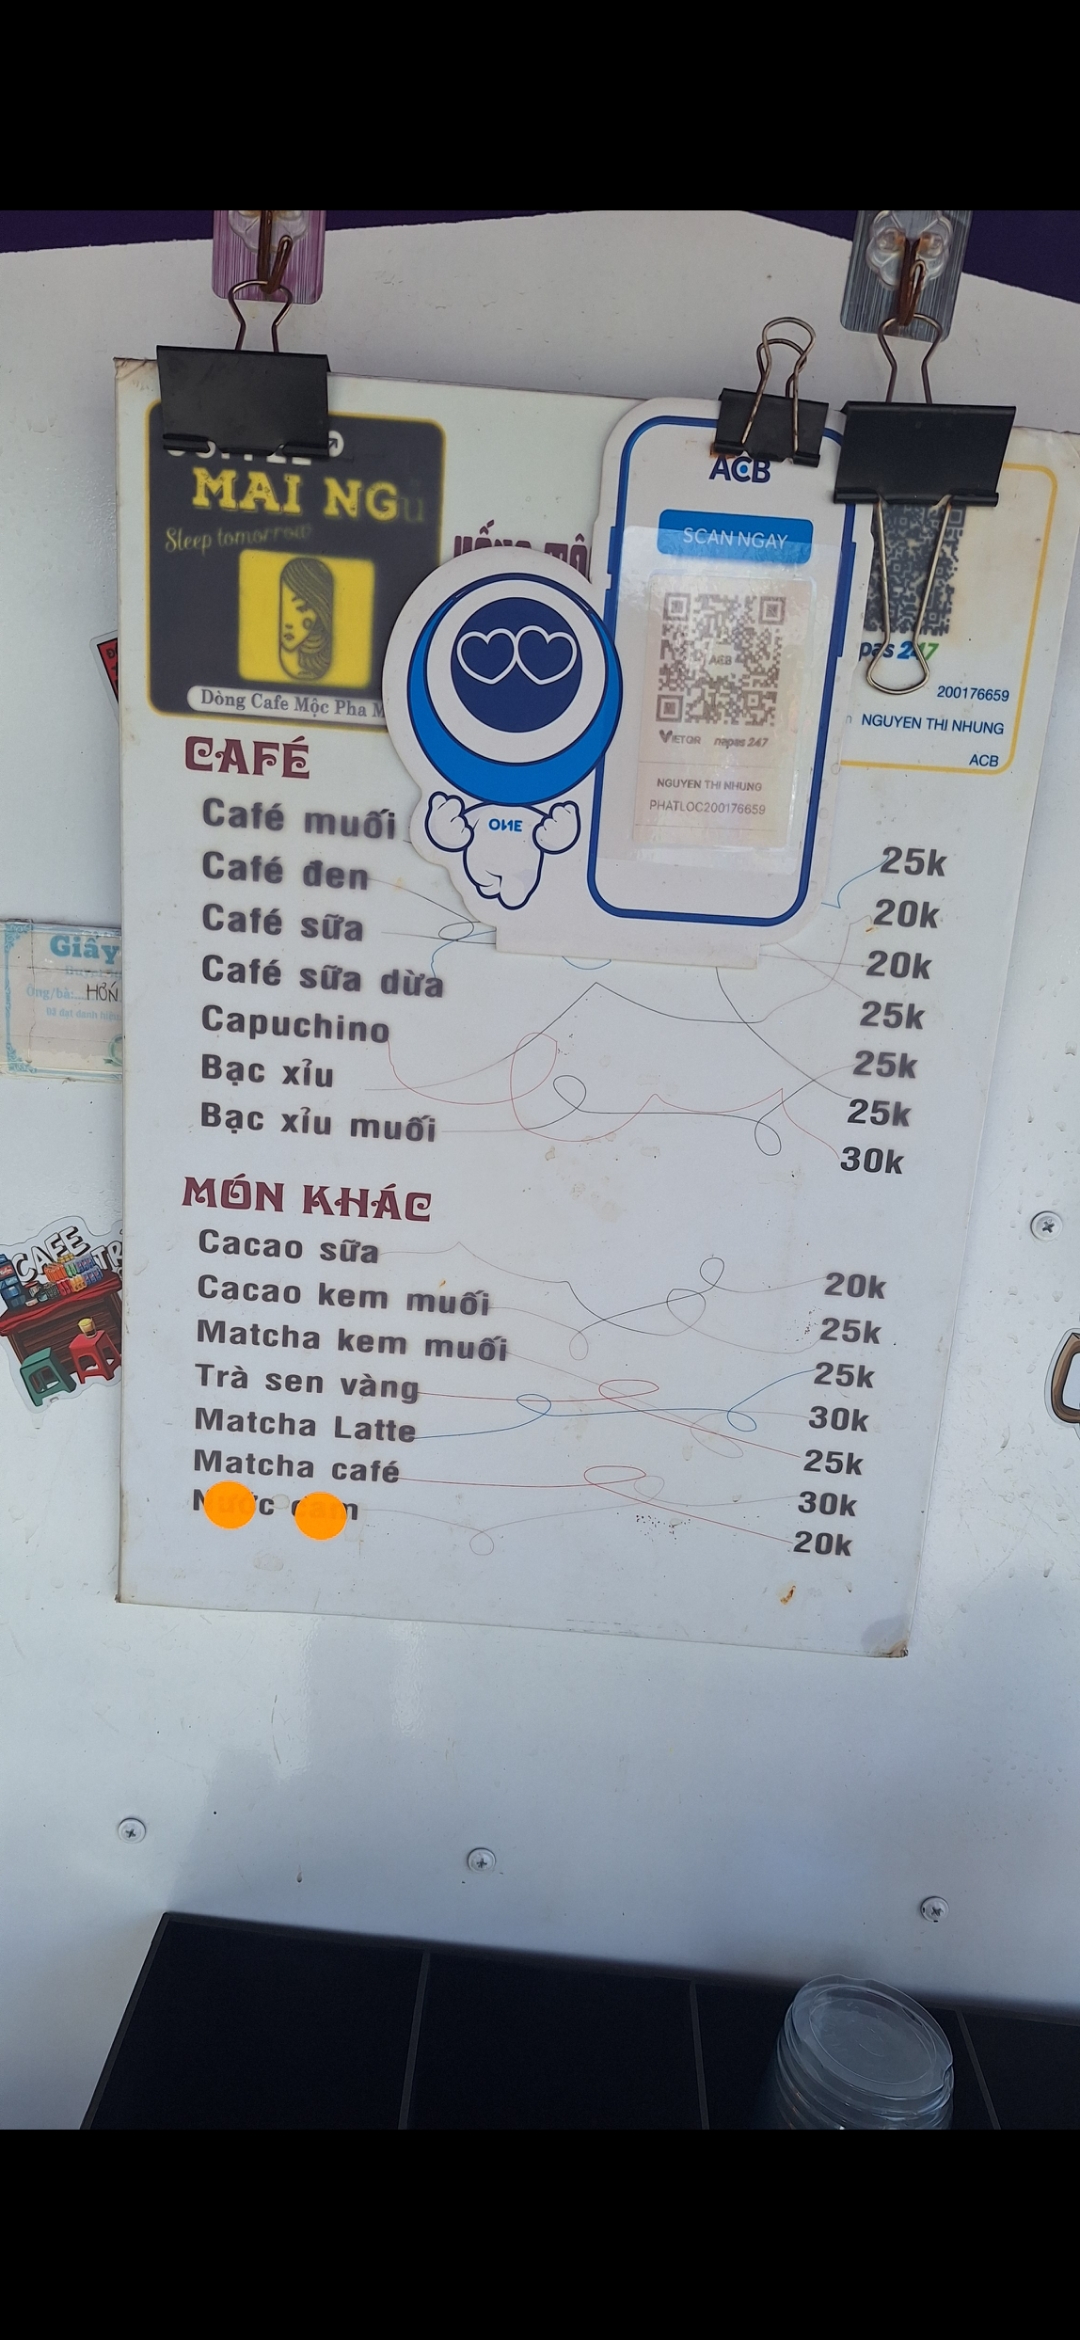 MAI NGủ
Sleep tomorrow
Dòng Cafe Mộc Pha M
ACB
SCAN NGAY
ACB
VIETQR napas 247
NGUYEN THI NHUNG
PHATLOC200176659
ONE
pas 247
200176659
NGUYEN THI NHUNG
ACB
CAFÉ
Café muối
Café đen 25k
Café sữa 20k
Café sữa dừa 20k
Capuchino 25k
Bạc xỉu 25k
Bạc xỉu muối 25k
30k
MÓN KHÁC
Cacao sữa 20k
Cacao kem muối 25k
Matcha kem muối 25k
Trà sen vàng 30k
Matcha Latte 25k
Matcha café 30k
Nước cam 20k
Giấy
Ông/bà:
CAFE